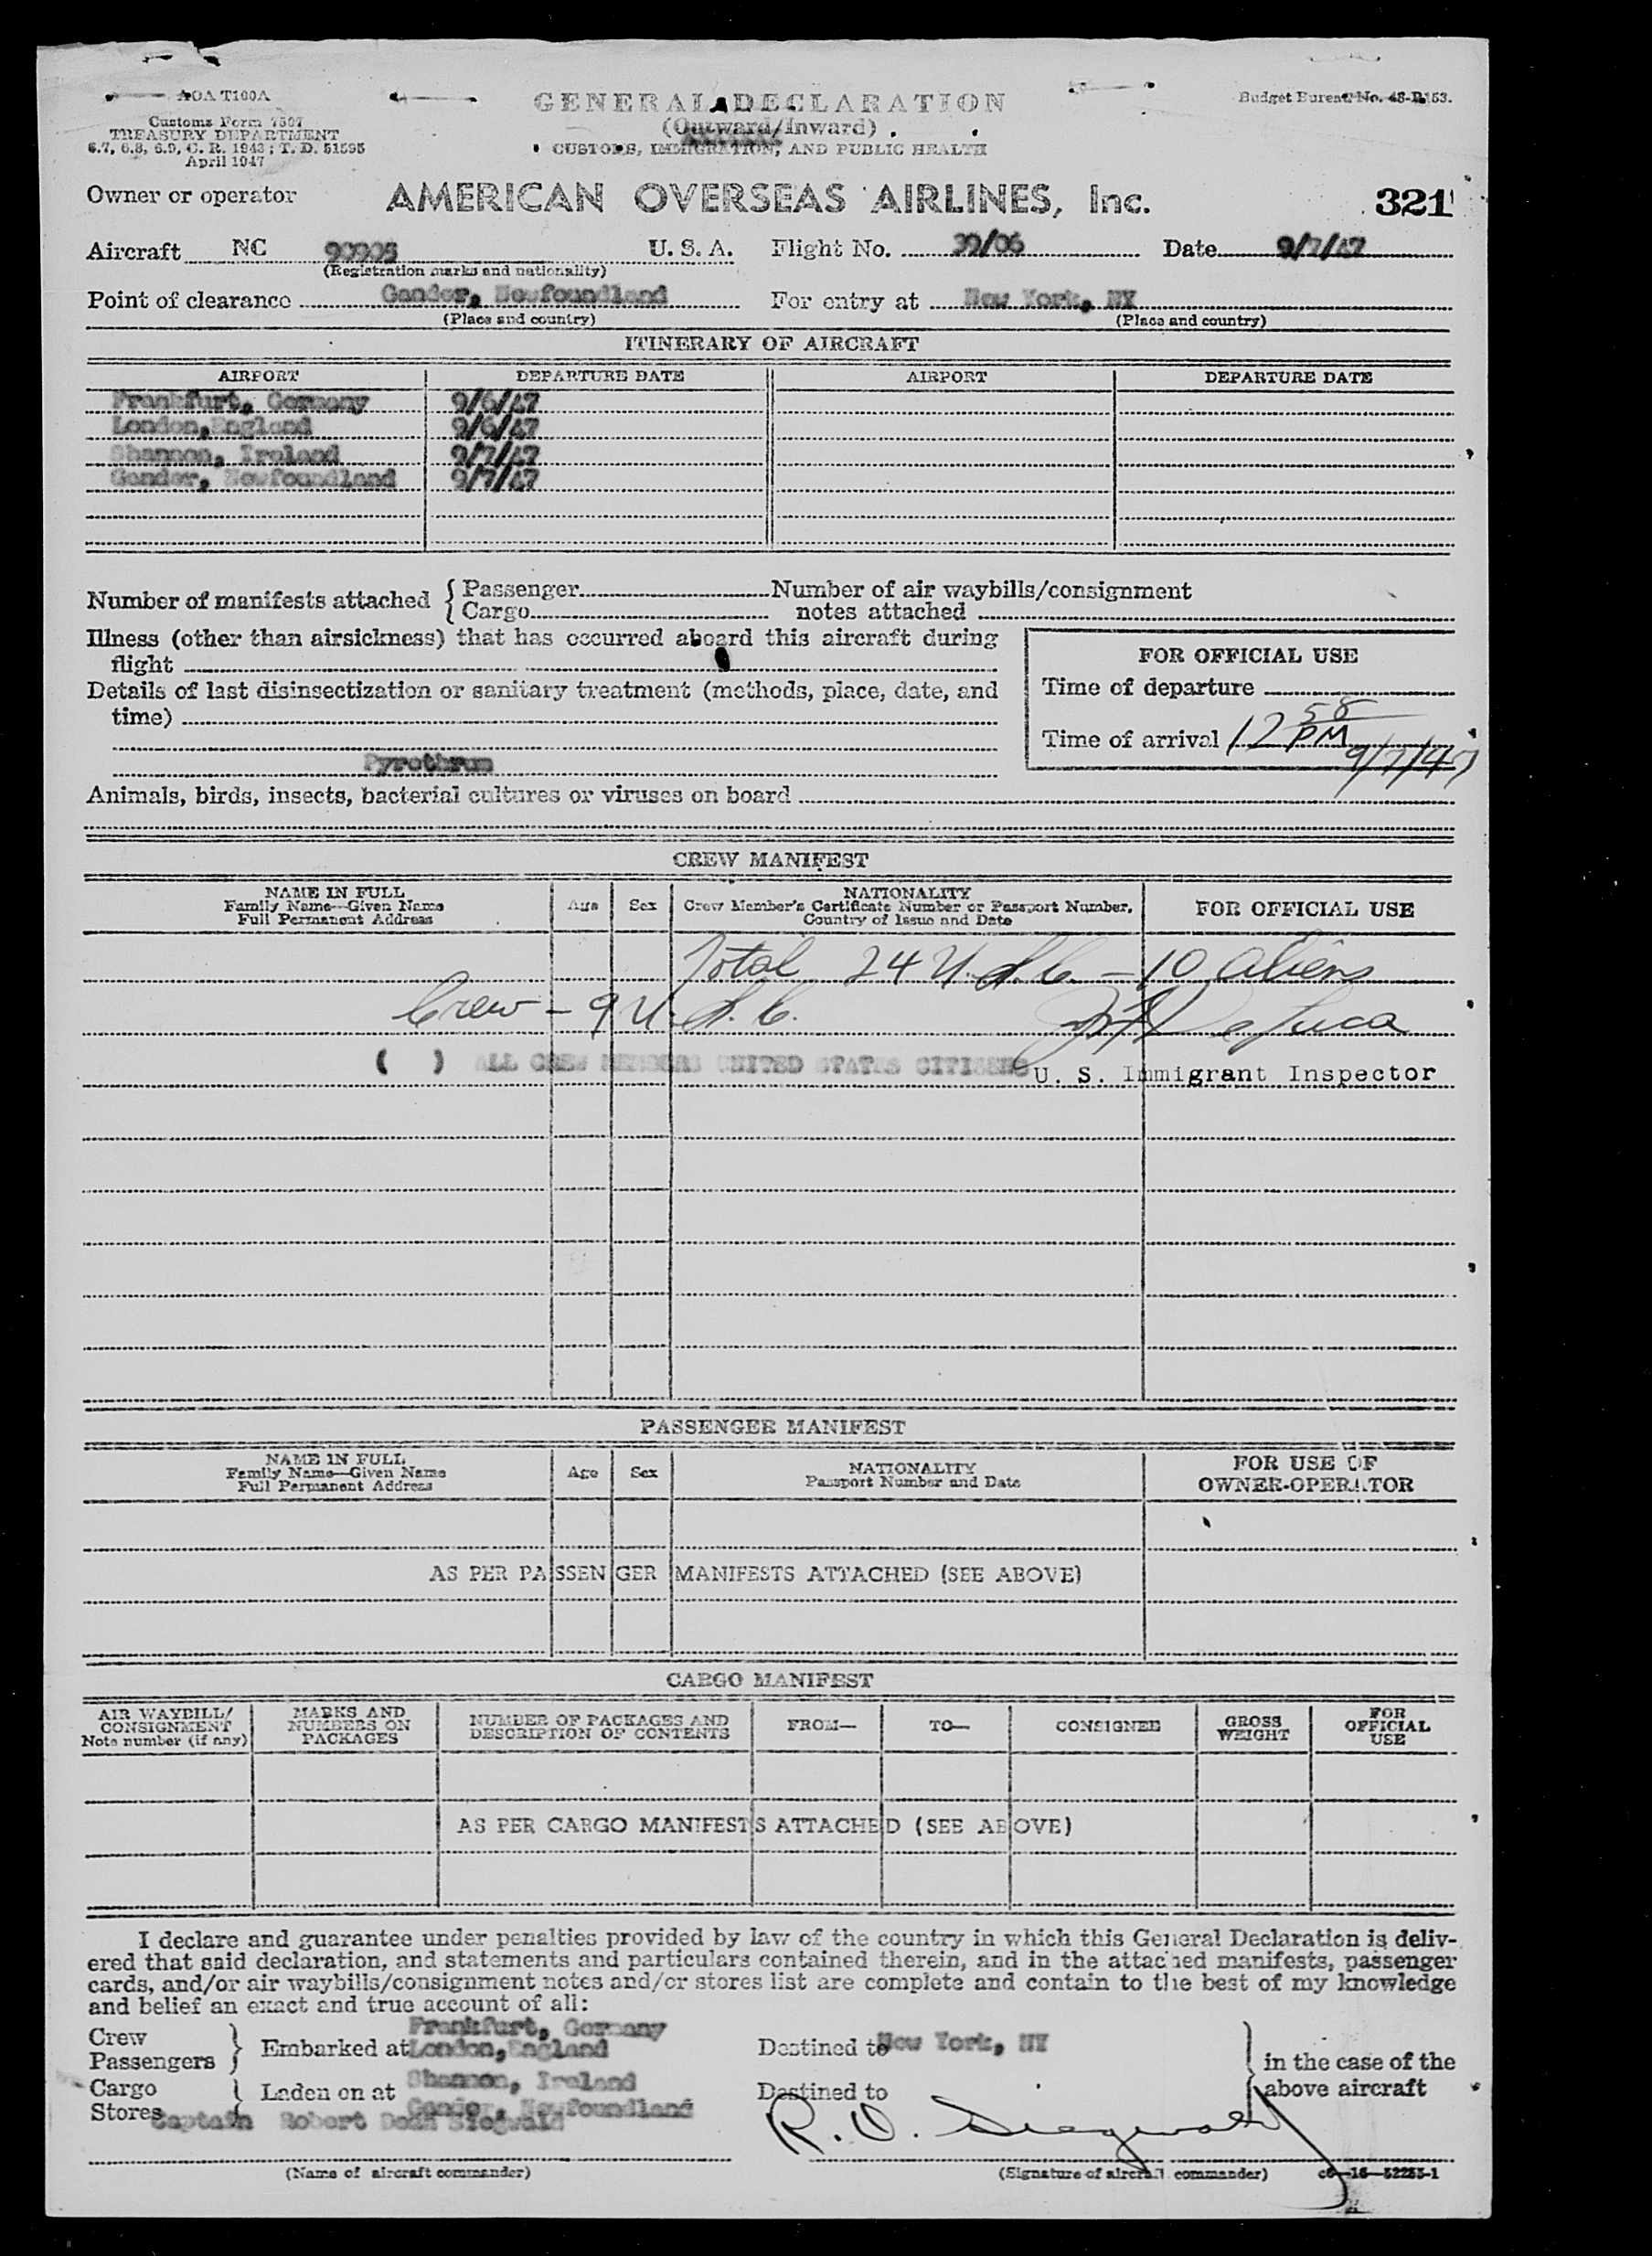 AOA T100A
GENERAL DECLARATION
Budget Bureau No. 48-R153.
Customs Form 7507
(Outward/Inward)
TREASURY DEPARTMENT
CUSTOMS, IMMIGRATION, AND PUBLIC HEALTH
6.7, 6.8, 6.9, C. R. 1943; T. D. 51595
April 1947
Owner or operator AMERICAN OVERSEAS AIRLINES, Inc. 321
Aircraft NC 90905 U. S. A. Flight No. 39/06 Date 9/7/47
(Registration marks and nationality)
Point of clearance Gander, Newfoundland For entry at New York, NY
(Place and country) (Place and country)
ITINERARY OF AIRCRAFT
AIRPORT DEPARTURE DATE AIRPORT DEPARTURE DATE
Frankfurt, Germany 9/6/47
London, England 9/6/47
Shannon, Ireland 9/7/47
Gander, Newfoundland 9/7/47
Number of manifests attached { Passenger Number of air waybills/consignment
Cargo notes attached
Illness (other than airsickness) that has occurred aboard this aircraft during
flight
FOR OFFICIAL USE
Details of last disinsectization or sanitary treatment (methods, place, date, and
time)
Time of departure
Time of arrival 12 58 PM 9/7/47
Pyrethrum
Animals, birds, insects, bacterial cultures or viruses on board
CREW MANIFEST
NAME IN FULL
Family Name—Given Name
Full Permanent Address
Age Sex
NATIONALITY
Crew Member's Certificate Number or Passport Number,
Country of Issue and Date
FOR OFFICIAL USE
Total 24 U.S.C. — 10 aliens
Crew — 9 U.S.C.
( ) ALL CREW MEMBERS UNITED STATES CITIZENS U. S. Immigrant Inspector
PASSENGER MANIFEST
NAME IN FULL
Family Name—Given Name
Full Permanent Address
Age Sex
NATIONALITY
Passport Number and Date
FOR USE OF
OWNER-OPERATOR
AS PER PASSENGER MANIFESTS ATTACHED (SEE ABOVE)
CARGO MANIFEST
AIR WAYBILL/
CONSIGNMENT
Note number (if any)
MARKS AND
NUMBERS ON
PACKAGES
NUMBER OF PACKAGES AND
DESCRIPTION OF CONTENTS
FROM— TO— CONSIGNEE
GROSS
WEIGHT
FOR
OFFICIAL
USE
AS PER CARGO MANIFESTS ATTACHED (SEE ABOVE)
I declare and guarantee under penalties provided by law of the country in which this General Declaration is deliv-
ered that said declaration, and statements and particulars contained therein, and in the attached manifests, passenger
cards, and/or air waybills/consignment notes and/or stores list are complete and contain to the best of my knowledge
and belief an exact and true account of all:
Frankfurt, Germany
Crew
Passengers } Embarked at London, England Destined to New York, NY
in the case of the
above aircraft
Cargo
Stores { Laden on at Shannon, Ireland Destined to
Gander, Newfoundland
Captain Robert Dean Siegwald R. D. Siegwald
(Name of aircraft commander) (Signature of aircraft commander)